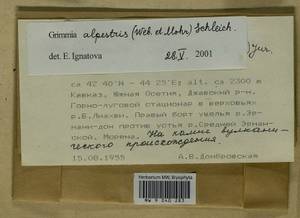 Grimmia alpestris (Web. et Mohr) Schleich.
det. E. Ignatova 28.V. 2001
са 42 40'N - 44 25'E; alt. ca 2300 m
Кавказ, Южная Осетия, Джавский р-н.
Горно-луговой стационар в верховьях
р.Б.Лиахви. Правый борт ущелья р.Эр-
мани-дон против устья р.Средней Эрман-
ской. Морена. На камне вулкани-
ческого происхождения.
15.08.1955 А.В.Домбровская
Herbarium MW, Bryophyta
MW 9 040 283